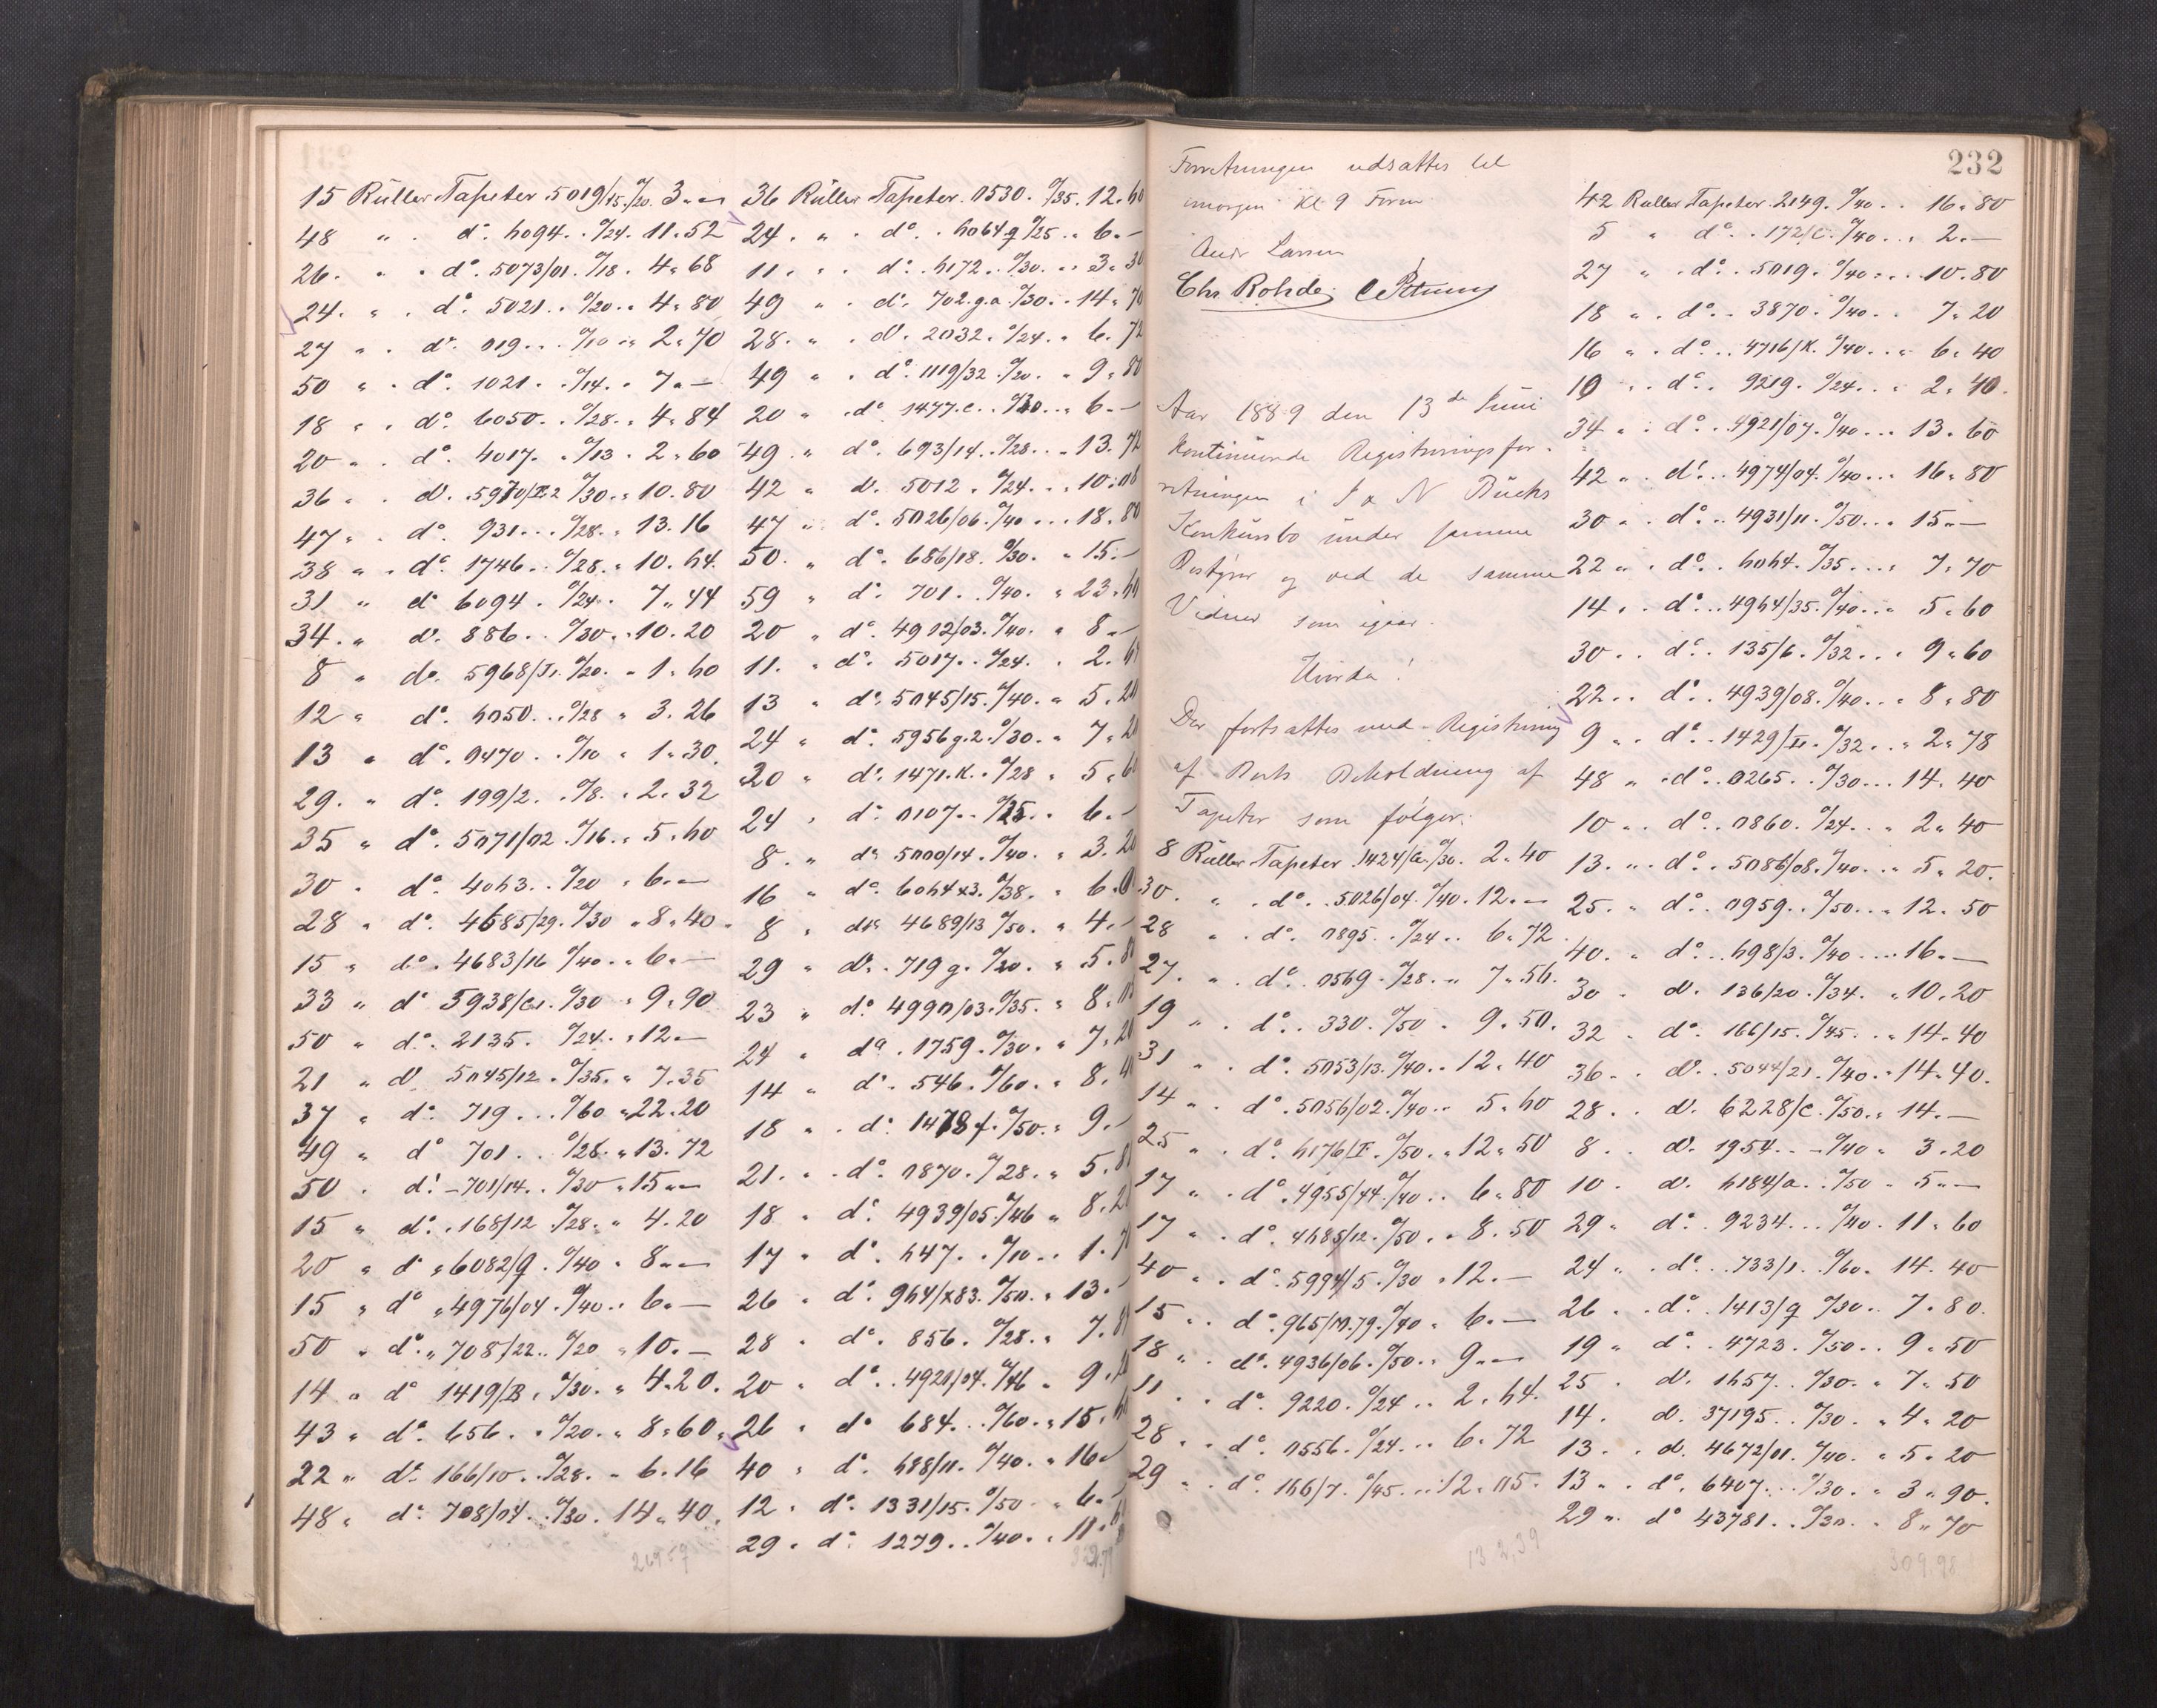 15 Rüller Tapeter 5019/15. º/20. 3 „ —
48 „ . dº. 6094 . . º/24. 11 „ 52
26. „ . dº. 5073/01. º/18. 4 „ 68
24. „ . dº. 5021 . . º/20 . „ 4 „ 80
27 „ . dº. 019 . . . º/10 „ 2 „ 70
50 „ . dº. 1021 . . º/14. „ 7 „ —
18 „ . dº. 6050 . . º/28. „ 4 „ 84
20 „ . dº. 4017. . º/13 „ 2 „ 60
36 „ . dº. 5970/I.2 º/30. „ 10. 80
47 „ . dº. 931 . . . º/28. „ 13. 16
38 „ . dº. 1746 . . º/28. „ 10. 64.
31 „ dº 6094 . º/24. 7 „ 44
34. „ dº. 886 . . º/30. „ 10. 20
8 „ dº. 5968/ º/20. „ 1 „ 60
12 „ dº. 6050. . . º/28 „ 3. 26
13 „ dº. 0470 . . º/10 „ 1 „ 30.
29. „ dº. 199/2. . º/8. „ 2 „ 32
35 „ dº. 5071/02 . º/16 . „ 5 „ 60
30 „ dº. 4063. . º/20 „ 6 „ —
28 „ dº. 4685/29. º/30 „ 8 „ 40
15 „ dº. 4683/16 º/40 . „ 6 „ —
33 „ dº 5938/ º/30 „ 9 „ 90
50 „ dº. 2135. º/24. „ 12 „ —
21 „ dº. 5045/12 . º/35. „ 7. 35
37 „ dº. 719. . . º/60 „ 22. 20
49 „ dº 701 . . º/28. „ 13. 72
50 „ dº. 701/14 . . º/30 „ 15 „ —
15 „ dº. 168/12 º/28. „ 4. 20
20 „ dº „ 6082/g. º/40 „ 8 „ —
15 „ dº „ 4976/04 . º/40 . „ 6. —
50 „ dº. „ 708/22. . º/20 „ 10. —
14 „ dº 1419/B. º/30. „ 4. 20.
43 „ dº. 656. . º/20. „ 8 „ 60 „
22 „ dº. 166/10. . º/28. „ 6. 16
48 „ dº. 708/04. . º/30. 14 „ 40.
269.59
36 Rüller Tapeter. 0530. º/35. 12. 60
24. „ . dº. . 6064 g º/25 . „ 6. —
11. „ . dº. . 6172 . . º/30. „ 3. 30
49 „ . dº. 702. g.a. º/30. . 14 „ 70
28. „ . dº. 2032 . º/24. „ 6. 72
49 „ . dº. 1119/32. º/20. „ 9 „ 80
20 „ . dº 1477. c. . º/30 . . „ 6. —
49 „ dº. 693/14. . º/28. . . 13. 72
42 „ dº. 5012 . º/24. . „ 10. 08
47 „ dº. 5026/06. º/40 . . . 18. 80
50. „ dº. 686/18. º/30. „ 15. —
59 „ dº. 701. . º/40. „ 23. 60
20 „ dº. 4912/03. º/40. „ 8 „ —
11. „ dº. 5017. . º/24. „ 2. 64
13 „ dº. 5045/15. º/40. „ 5. 20
24 „ dº. 5956 g. 2. º/30. „ 7. 20
20 „ dº. 1471. K. . º/28 „ 5 „ 60
24 „ dº. 0107. . º/25. . 6. —
8. „ dº. 5000/14. º/40. „ 3. 20
16 „ dº. 6064 x3. º/38. „ 6.
8 „ dº 4689/13 º/50. „ 4. —
29 „ dº. . 719 g. º/20. „ 5. 80
23 „ dº. 4990/03. º/35. „ 8.
24 „ dº. 1759. º/30. „ 7. 20
14 „ dº. 546. º/60. „ 8. 40
18 „ . dº. 1478 f. º/50. „ 9. —
21. „ . dº. 0870. º/28. „ 5. 8
18 „ dº. 4939/05. º/46 „ 8. 2
17 „ dº. 647. . º/10. „ 1. 7
26 „ dº. 964/x83. º/50. „ 13. —
28 „ dº. 856. º/28. „ 7. 8
20 „ dº. . 4921/04. º/46 „ 9.
26 „ dº 684. . º/60. „ 15. 60
40 „ dº. 688/11. º/40. „ 16 „
12 „ dº. 1331/15. º/50 „ 6. —
29 „ dº. 1279. . º/40. „ 11. 6
232
Forretningen udsattes til
imorgen Kl. 9 Form.
Andr Larsen
Chr. Rohde. C Petersen
Aar 1889 den 13de Juni
kontinuerede Registreringsfor-
retningen i J & N Bucks
Konkürsbo ünder samme
Bestyrer og ved de samme
Vidner som igaar.
Hvorda!
Der fortsattes med Registrering
af Boets Beholdning af
Tapeter som følger:
8 Rüller Tapeter. 1424/ º/30. 2 „ 40
30. „ . dº. . 5026/04. º/40. 12. —
28 „ . dº. 0895. . º/24 . . 6 „ 72
27. „ . dº. 0569. º/28. „ 7 „ 56.
19 „ . dº. . 330. º/50 . 9. 50.
31 „ . dº. 5053/13. º/40. . 12. 40
14 „ . dº. 5056/02. º/40. . 5. 60
25 „ . dº. 6176/I. º/50. „ 12 „ 50
17 „ . dº. 4955/44. º/40 . . 6 „ 80
17 „ . dº. 4685/12. º/50. „ 8. 50
40 „ . dº. 5994/5. º/30 „ 12. —
15 „ . dº. 965/M. 79. º/40 „ 6. —
18 „ . dº. 4936/06. º/50. „ 9 „ —
11 „ . dº. 9220. º/24 . . 2. 64.
28 „ . dº. 0556. º/24. . . 6. 72
29 „ . dº. 166/7. º/45. . . 12. 05.
132,39
42 Rüller Tapeter. 2149. º/40. . . 16 „ 80
5 „ dº. . 172/C. º/40. . . 2. —
27 „ . dº. . 5019. º/40 . . . 10. 80
18 „ . dº. . 3870. º/40. . 7. 20
16 „ . dº. . 4716/K. º/40. . „ 6 „ 40
10 „ . dº. . 9219. º/24. . . 2. 40.
34 „ . dº. . 4921/07. º/40. . . 13. 60
42 „ . dº. . 4974/04. º/40. . . 16 „ 80
30 „ . dº. . 4931/11. º/50. . . 15 „ —
22 „ . dº. . 6064. º/35. . . . 7. 70
14 „ . dº. . 4964/35. º/40. . . 5. 60
30 . . dº. . 135/6. º/32 . . . 9 „ 60
22 . . dº. . 4939/08. º/40. . . 8 „ 80
9 „ . dº. . 1429/II. º/32. . . 2 „ 78
48 „ . dº. . 0265. . º/30. . . 14. 40
10 „ . dº. . 0860. º/24. . „ 2 „ 40
13. „ . dº. . 5086/08. º/40. . „ 5. 20.
25. „ dº. . 0959. . º/50. . „ 12. 50
40. „ dº. . . 698/3. º/40 . . . . 16. —
30 „ dº. 136/20. º/34. „ 10. 20
32 . dº. 166/15. º/45. . . 14. 40
36 . . dº. . 5044/21. º/40. . 14. 40.
28. . dº. 6228/C. º/50. „ 14. —
8 . . dº. 1954. . – º/40 „ 3. 20
10 . dº. 6184/a. . º/50 „ 5 „ —
29 „ dº. . 9234. . . º/40. 11 „ 60
24 „ . dº. . . 733/1. º/60. 14. 40
26 „ . dº. . 1413/g º/30. . 7. 80.
19 „ dº. . 4723. º/50. . 9. 50
25 . dº. 1657. . º/30. „ 7. 50
14. dº. 37195. . º/30. . 4. 20
13. . dº. 4672/01. º/40. „ 5. 20
13 „ . dº. 6407. . . º/30. „ 3 „ 90.
29 „ . dº 43781. . º/30. . 8 „ 70
309,98